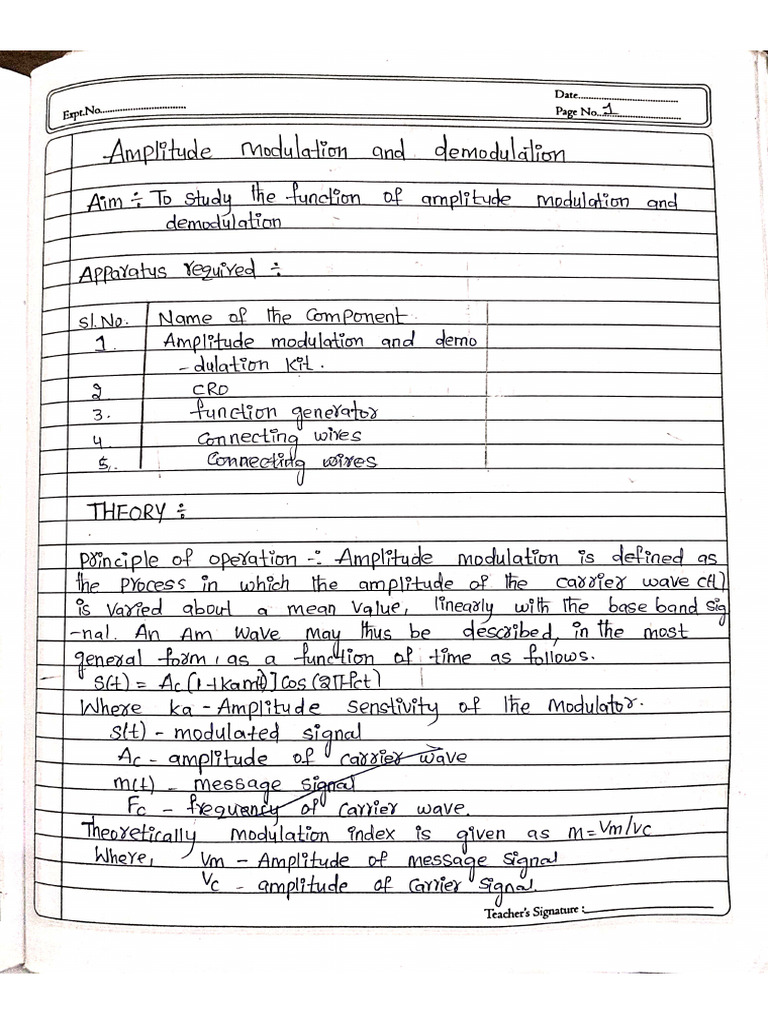 Expt.No................................
Date..................................
Page No...1........................
Amplitude modulation and demodulation
Aim ÷ To study the function of amplitude modulation and
demodulation
Apparatus required ÷
Sl.No. Name of the Component
1. Amplitude modulation and demo
-dulation kit.
2 CRO
3. function generator
4. Connecting wires
5. Connecting wires
THEORY ÷
Principle of operation -: Amplitude modulation is defined as
the process in which the amplitude of the carrier wave c(t)
is varied about a mean value, linearly with the base band sig
-nal. An Am wave may thus be described, in the most
general form, as a function of time as follows.
S(t) = Ac(1+kam(t)]Cos(2πfct)
Where ka - Amplitude senstivity of the Modulator.
S(t) - modulated signal
Ac - amplitude of carrier wave
m(t) - message signal
Fc - frequency of carrier wave.
Theoretically modulation index is given as m=Vm/Vc
Where, Vm - Amplitude of message signal
Vc - amplitude of carrier signal.
Teacher's Signature :